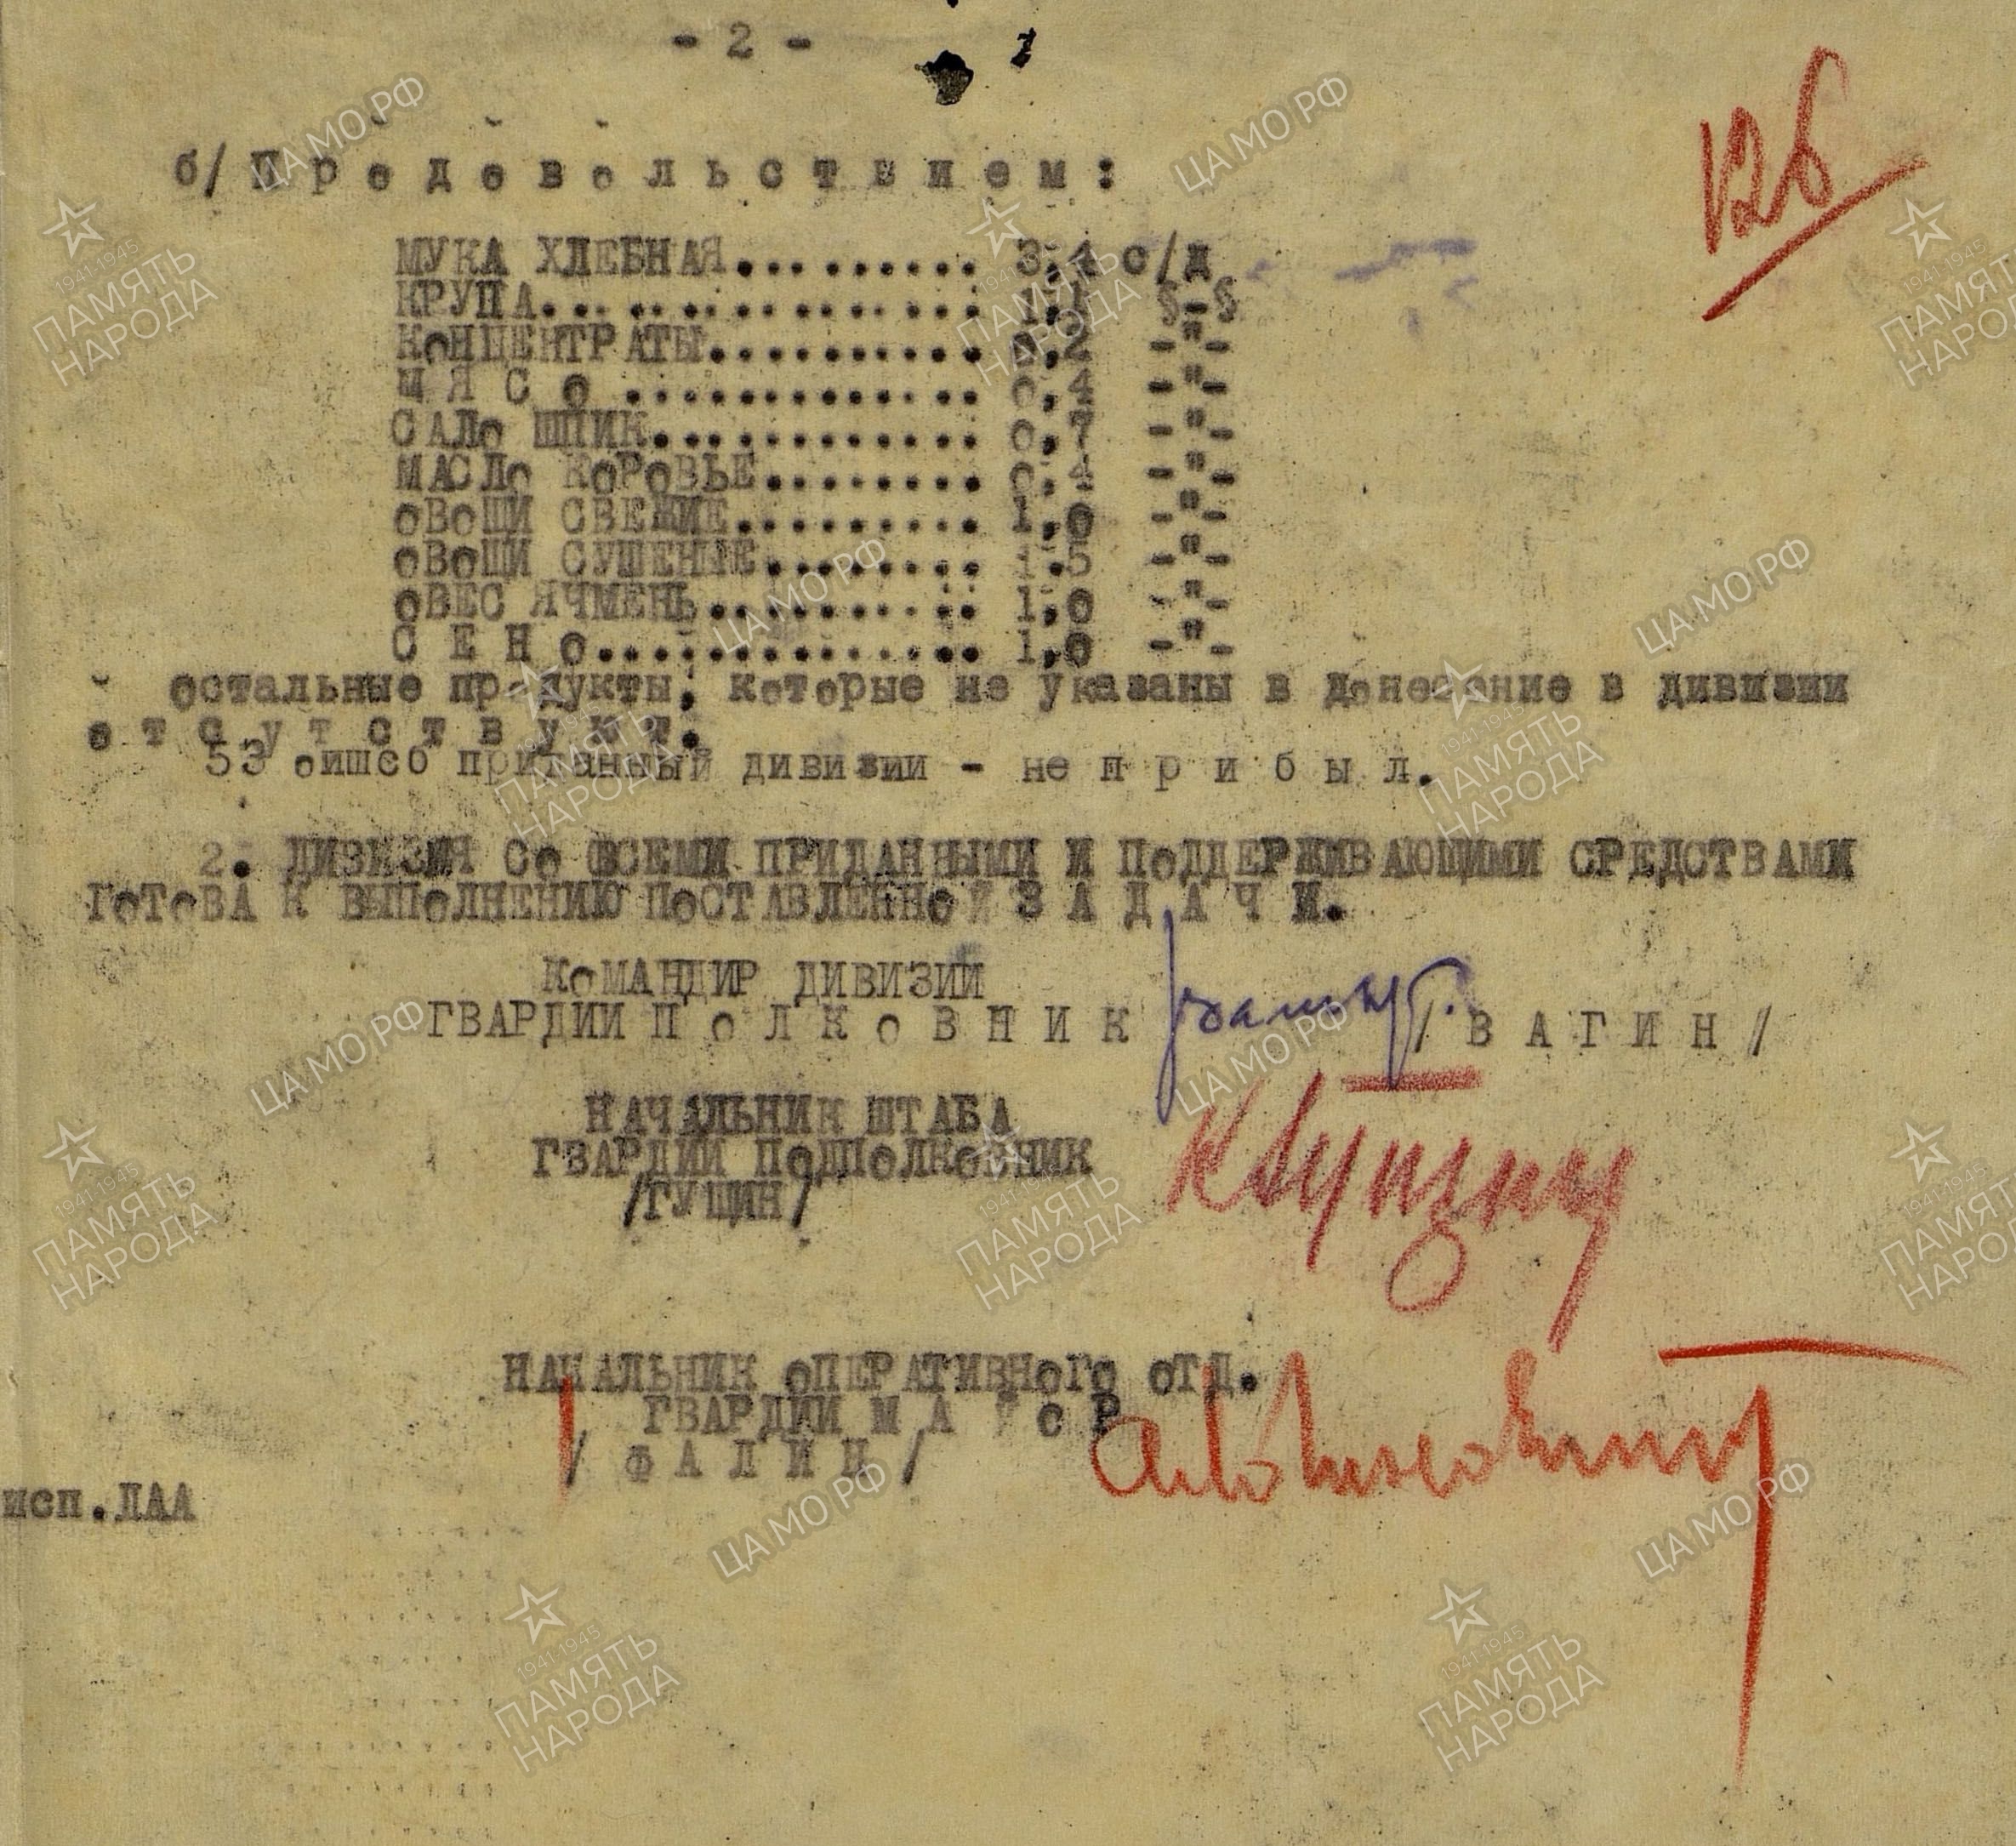 - 2 -
126
б/ П р о д о в о л ь с т в и е м :
МУКА ХЛЕБНАЯ.......... 3,4 с/д
КРУПА................ 1,1 §-§
КОНЦЕНТРАТЫ.......... 0,2 -"-
М Я С О ............. 0,4 -"-
САЛО ШПИК............ 0,7 -"-
МАСЛО КОРОВЬЕ........ 0,4 -"-
ОВОЩИ СВЕЖИЕ......... 1,0 -"-
ОВОЩИ СУШЕНЫЕ........ 1.5 -"-
ОВЕС ЯЧМЕНЬ.......... 1,0 -"-
С Е Н О.............. 1,0 -"-
Остальные продукты, которые не указаны в донесение в дивизии
о т с у т с т в у ю т.
53 оишсб приданный дивизии - не п р и б ы л.
2. ДИВИЗИЯ СО ВСЕМИ ПРИДАННЫМИ И ПОДДЕРЖИВАЮЩИМИ СРЕДСТВАМИ
ГОТОВА К ВЫПОЛНЕНИЮ ПОСТАВЛЕННОЙ З А Д А Ч И.
КОМАНДИР ДИВИЗИИ
ГВАРДИИ П О Л К О В Н И К / В А Г И Н /
НАЧАЛЬНИК ШТАБА
ГВАРДИИ ПОДПОЛКОВНИК
/ГУЩИН/
НАЧАЛЬНИК ОПЕРАТИВНОГО ОТД.
ГВАРДИИ М А Й О Р
/ Ф А Л И Н /
исп.ЛАА
ЦА МО РФ
1941-1945
ПАМЯТЬ
НАРОДА